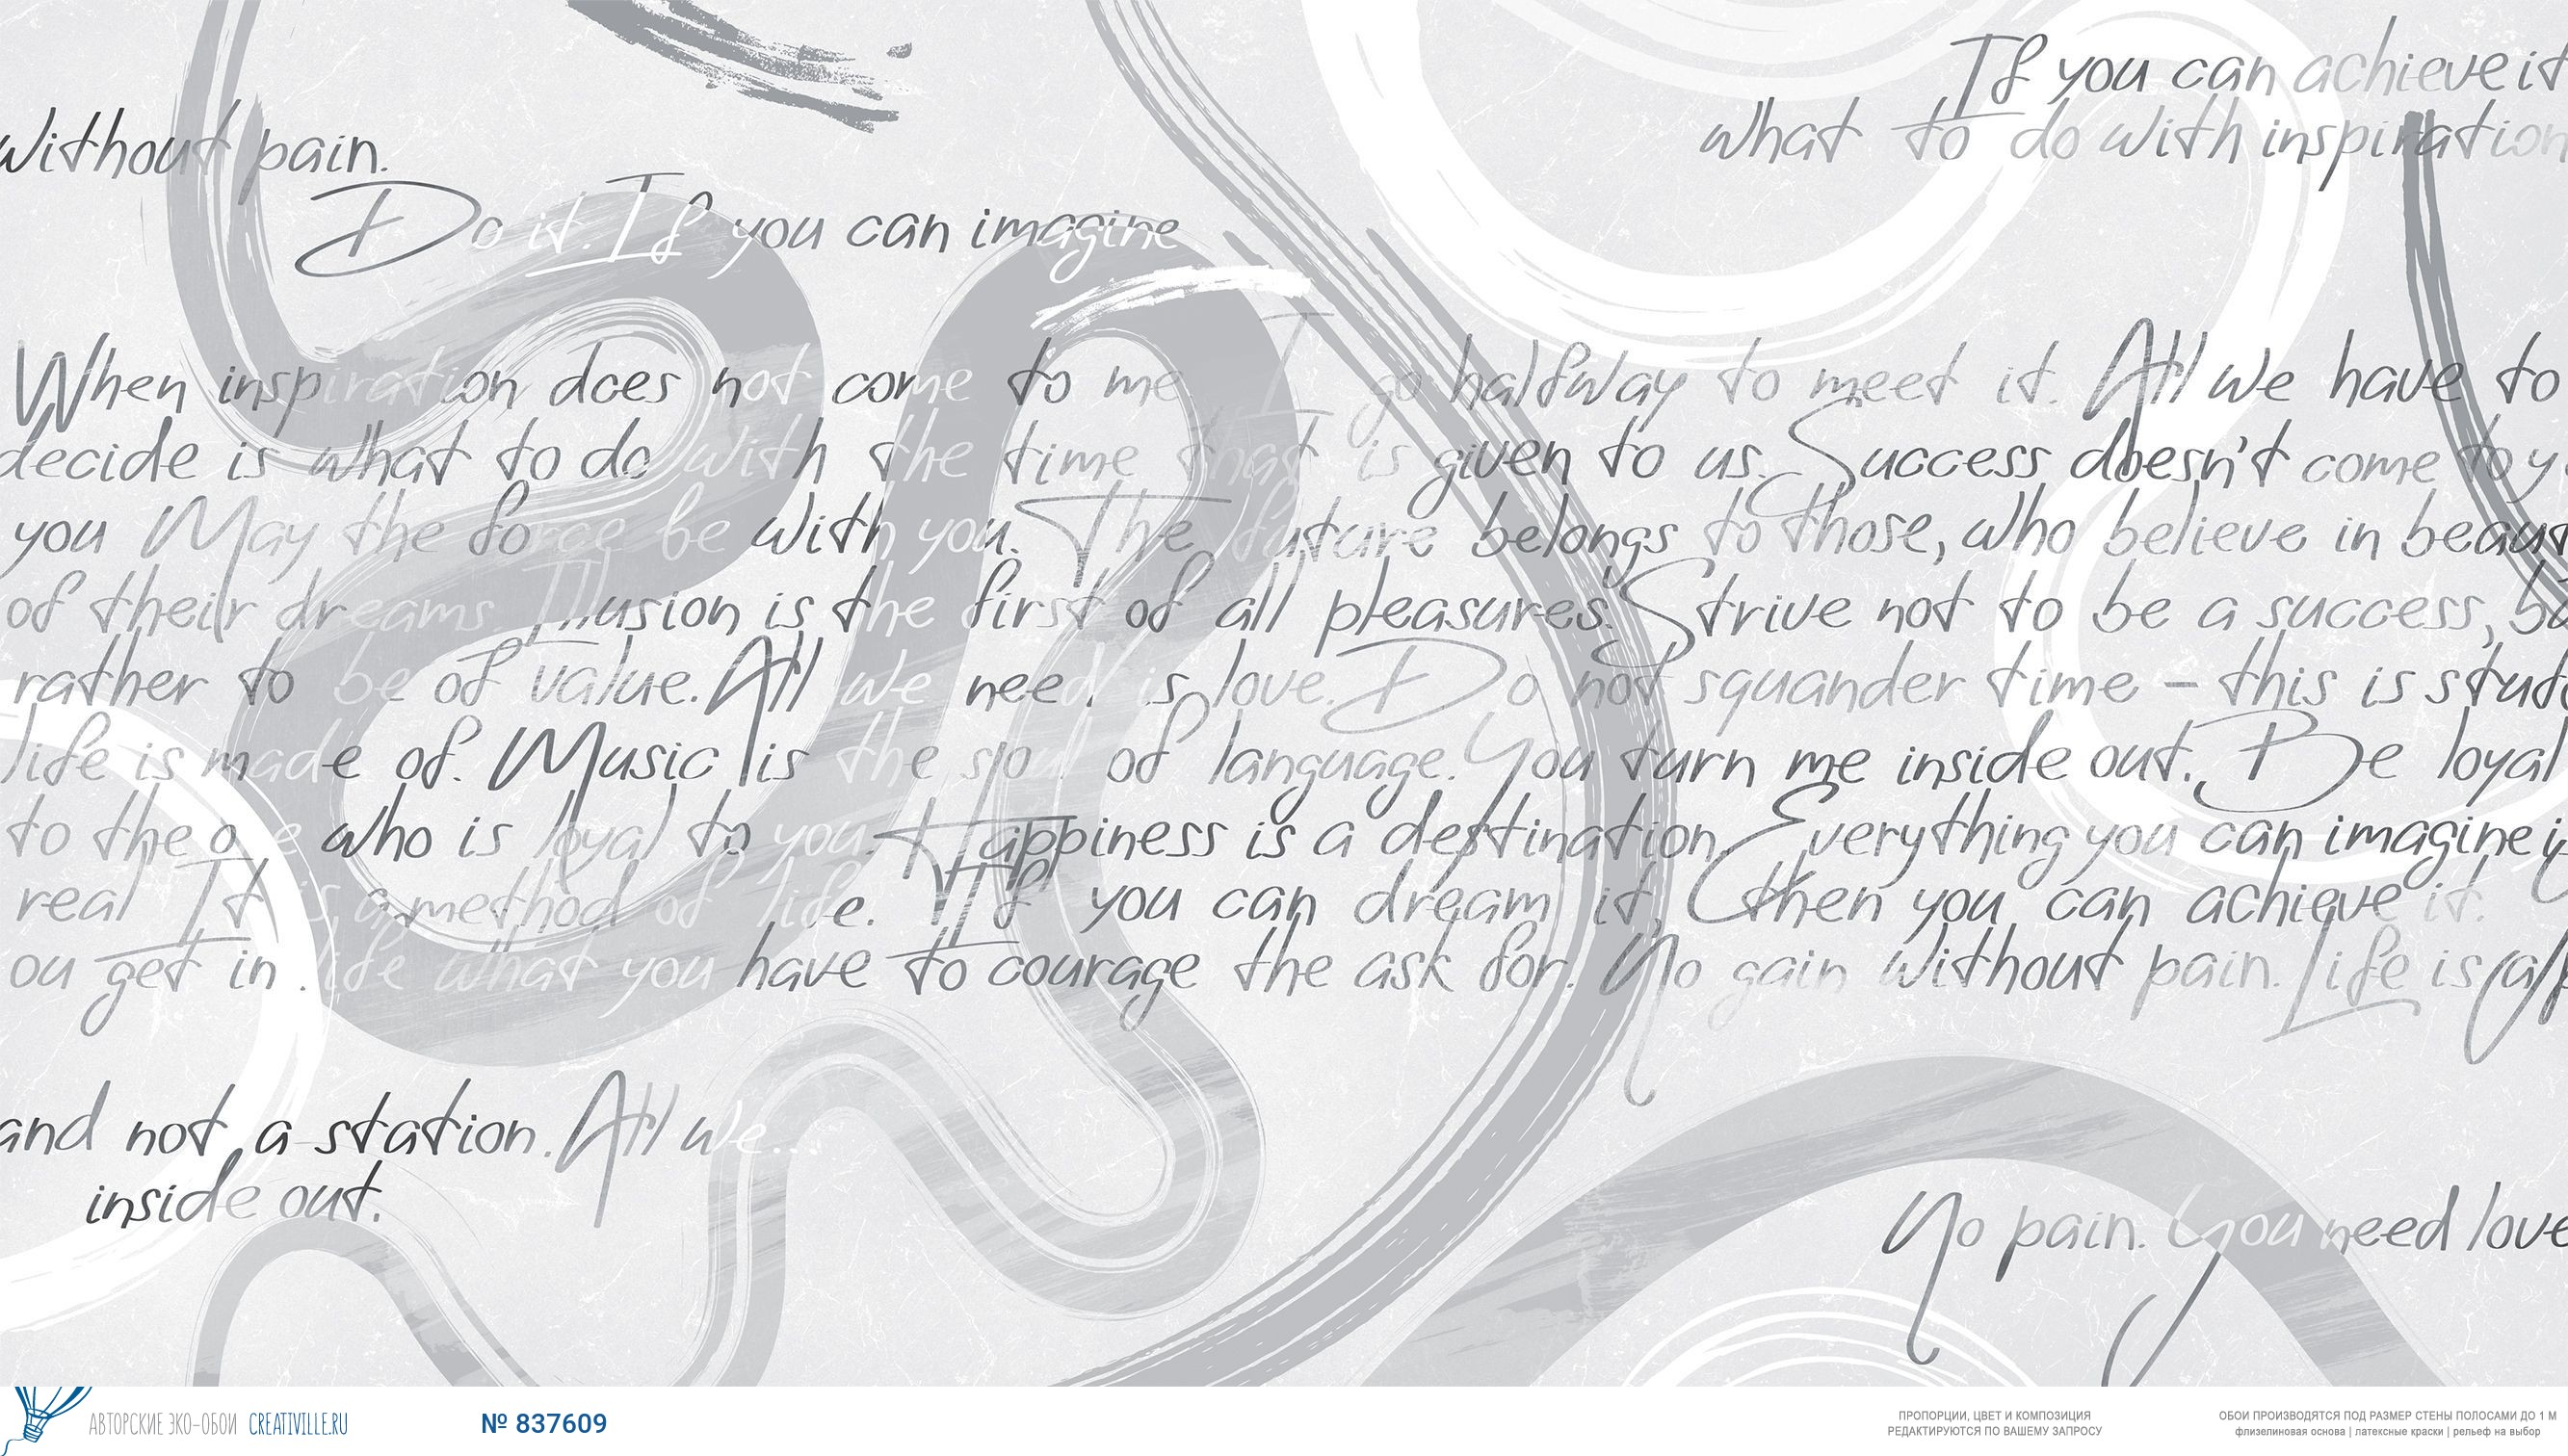 If you can achieve it
what to do with inspiration
without pain.
Do it. If you can imagine
When inspiration does not come to me I go halfway to meet it. All we have to
decide is what to do with the time that is given to us. Success doesn't come to y
you May the force be with you. The future belongs to those, who believe in beaut
of their dreams. Illusion is the first of all pleasures. Strive not to be a success, bu
rather to be of value. All we need is love. Do not squander time – this is stuf
life is made of. Music is the of language. You turn me inside out. Be loyal
to the who is loyal to you. Happiness is a destination. Everything you can imagine i
real It is a method of life. If you can dream it, then you can achieve it.
ou get in life what you have to courage the ask for. No gain without pain. Life is
and not a station. All we...
inside out.
No pain. You need love
АВТОРСКИЕ ЭКО-ОБОИ CREATIVILLE.RU
№ 837609
ПРОПОРЦИИ, ЦВЕТ И КОМПОЗИЦИЯ
РЕДАКТИРУЮТСЯ ПО ВАШЕМУ ЗАПРОСУ
ОБОИ ПРОИЗВОДЯТСЯ ПОД РАЗМЕР СТЕНЫ ПОЛОСАМИ ДО 1 М
флизелиновая основа | латексные краски | рельеф на выбор